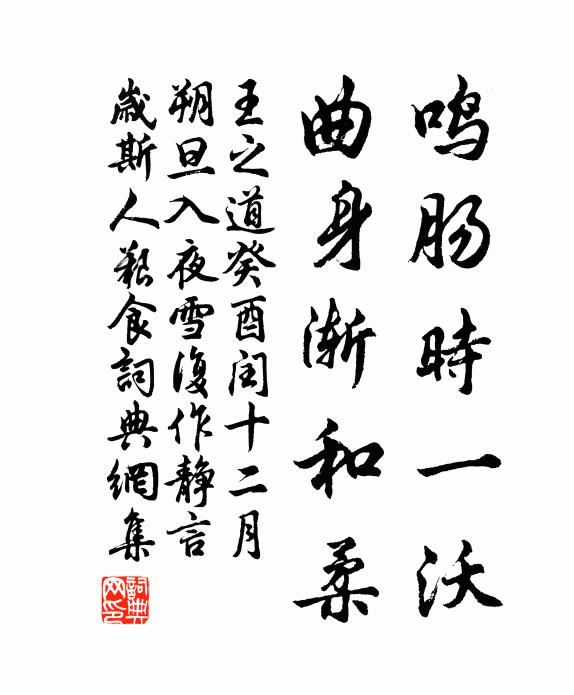 鸣肠時一沃
曲身渐和柔
王之道癸酉闰十二月
朔旦入夜雪復作靜言
歲斯人艱食詞典網集
詞典
网印